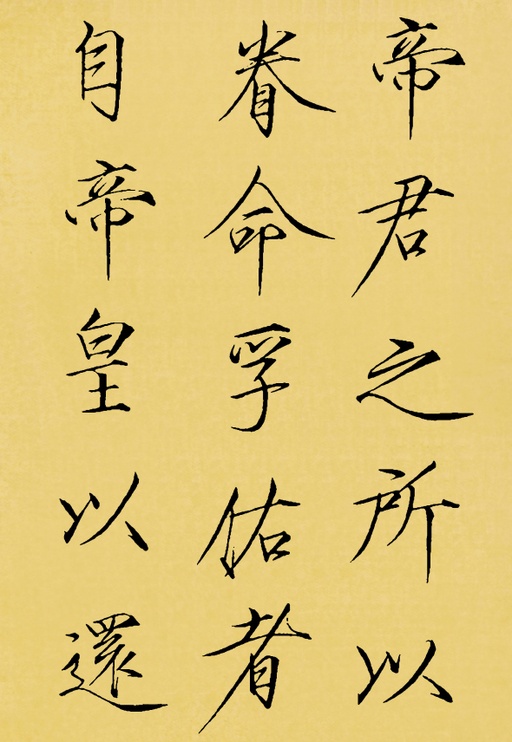 帝君之所以
眷命孚佑者
自帝皇以還